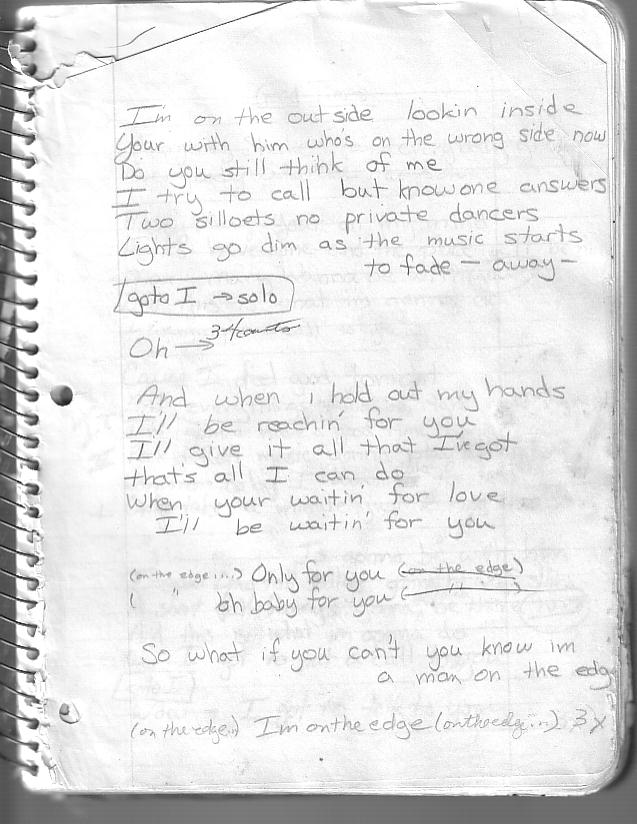 I'm on the outside lookin inside
Your with him who's on the wrong side now
Do you still think of me
I try to call but knowone answers
Two silloets no private dancers
Lights go dim as the music starts
to fade - away -
goto I → solo
Oh →
And when i hold out my hands
I'll be reachin' for you
I'll give it all that I've got
that's all I can do
When your waitin' for love
I'll be waitin' for you
(on the edge ...) Only for you (on the edge)
( " oh baby for you ( "
So what if you can't you know im
a man on the edg
(on the edge..) I'm on the edge (on the edge ..) 3x